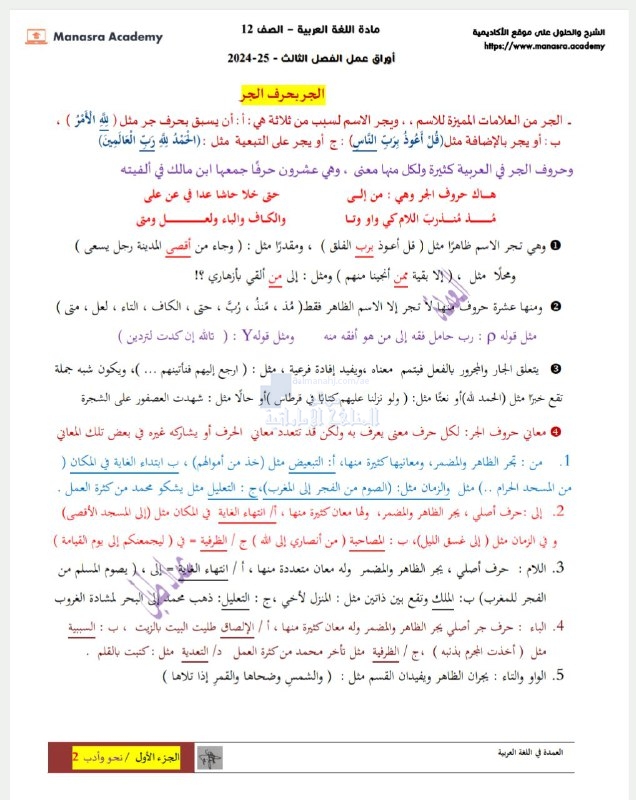 الشرح والحلول على موقع الأكاديمية
https://www.manasra.academy
مادة اللغة العربية – الصف 12
أوراق عمل الفصل الثالث - 25-2024
Manasra Academy
الجر بحرف الجر
ـ الجر من العلامات المميزة للاسم ، ، ويجر الاسم لسبب من ثلاثة هي : أ : أن يسبق بحرف جر مثل ( لِلَّهِ الْأَمْرُ ) ،
ب : أو يجر بالإضافة مثل(قُلْ أَعُوذُ بِرَبِّ النَّاسِ) : ج أو يجر على التبعية مثل : (الْحَمْدُ لِلَّهِ رَبِّ الْعَالَمِينَ)
وحروف الجر في العربية كثيرة ولكل منها معنى ، وهي عشرون حرفًا جمعها ابن مالك في ألفيته
هـاك حروف الجر وهي : من إلـى حتى خلا حاشا عدا في عن على
مُـــذ مُـنـذربَ اللام كي واو وتـا والكـاف والباء ولعـــــل ومتى
❶ وهي تـجر الاسم ظاهرًا مثل ( قل أعـوذ برب الفلق ) ، ومقدرًا مثل : ( وجاء من أقصى المدينة رجل يسعى )
ومحلًا مثل ، ( إلا بقية ممن أنجينا منهم ) ومثل : إلى من ألقي بأزهاري ؟!
❷ ومنها عشرة حروف منها لا تجر إلا الاسم الظاهر فقط( مُذ ، مُنذُ ، رُبَّ ، حتى ، الكاف ، التاء ، لعل ، متى )
مثل قوله ρ : رب حامل فقه إلى من هو أفقه منه ومثل قوله Y : ( تالله إن كدت لتردين )
❸ يتعلق الجار والمجرور بالفعل فيتمم معناه ،ويفيد إفادة فرعية ، مثل : ( ارجع إليهم فنأتينهم ... )، ويكون شبه جملة
تقع خبرًا مثل (الحمد لله)أو نعتًا مثل: ( ولو نزلنا عليهم كتابًا في قرطاس )أو حالًا مثل : شهدت العصفور على الشجرة
almanahj.com/ae
المناهج الإماراتية
❹ معاني حروف الجر: لكل حرف معنى يعرف به ولكن قد تتعدد معاني الحرف أو يشاركه غيره في بعض تلك المعاني
1. من : تجر الظاهر والمضمر، ومعانيها كثيرة منها، أ: التبعيض مثل (خذ من أموالهم) ، ب ابتداء الغاية في المكان (
من المسجد الحرام ..) مثل والزمان مثل: (الصوم من الفجر إلى المغرب)،ج : التعليل مثل يشكو محمد من كثرة العمل .
2. إلى :حرف أصلي ، يجر الظاهر والمضمر، ولها معان كثيرة منها ، أ/ انتهاء الغاية في المكان مثل (إلى المسجد الأقصى)
و في الزمان مثل ( إلى غسق الليل)، ب : المصاحبة ( من أنصاري إلى الله ) ج / الظرفية = في ( ليجمعنكم إلى يوم القيامة )
3. اللام : حرف أصلي ، يجر الظاهر والمضمر وله معان متعددة منها ، أ / انتهاء الغاية = إلى ، ( يصوم المسلم من
الفجر للمغرب) ب: الملك وتقع بين ذاتين مثل : المنزل لأخي ،ج : التعليل: ذهب محمد إلى البحر لمشادة الغروب
4. الباء : حرف جر أصلي يجر الظاهر والمضمر وله معان كثيرة منها ، أ / الإلصاق طليت البيت بالزيت ، ب : السببية
مثل ( أخذت المجرم بذنبه ) ،ج / الظرفية مثل تأخر محمد من كثرة العمل د/ التعدية مثل : كتبت بالقلم .
5. الواو والتاء : يجران الظاهر ويفيدان القسم مثل : ( والشمسِ وضحاها والقمرِ إذا تلاها )
العمدة في اللغة العربية
الجزء الأول / نحو وأدب 2